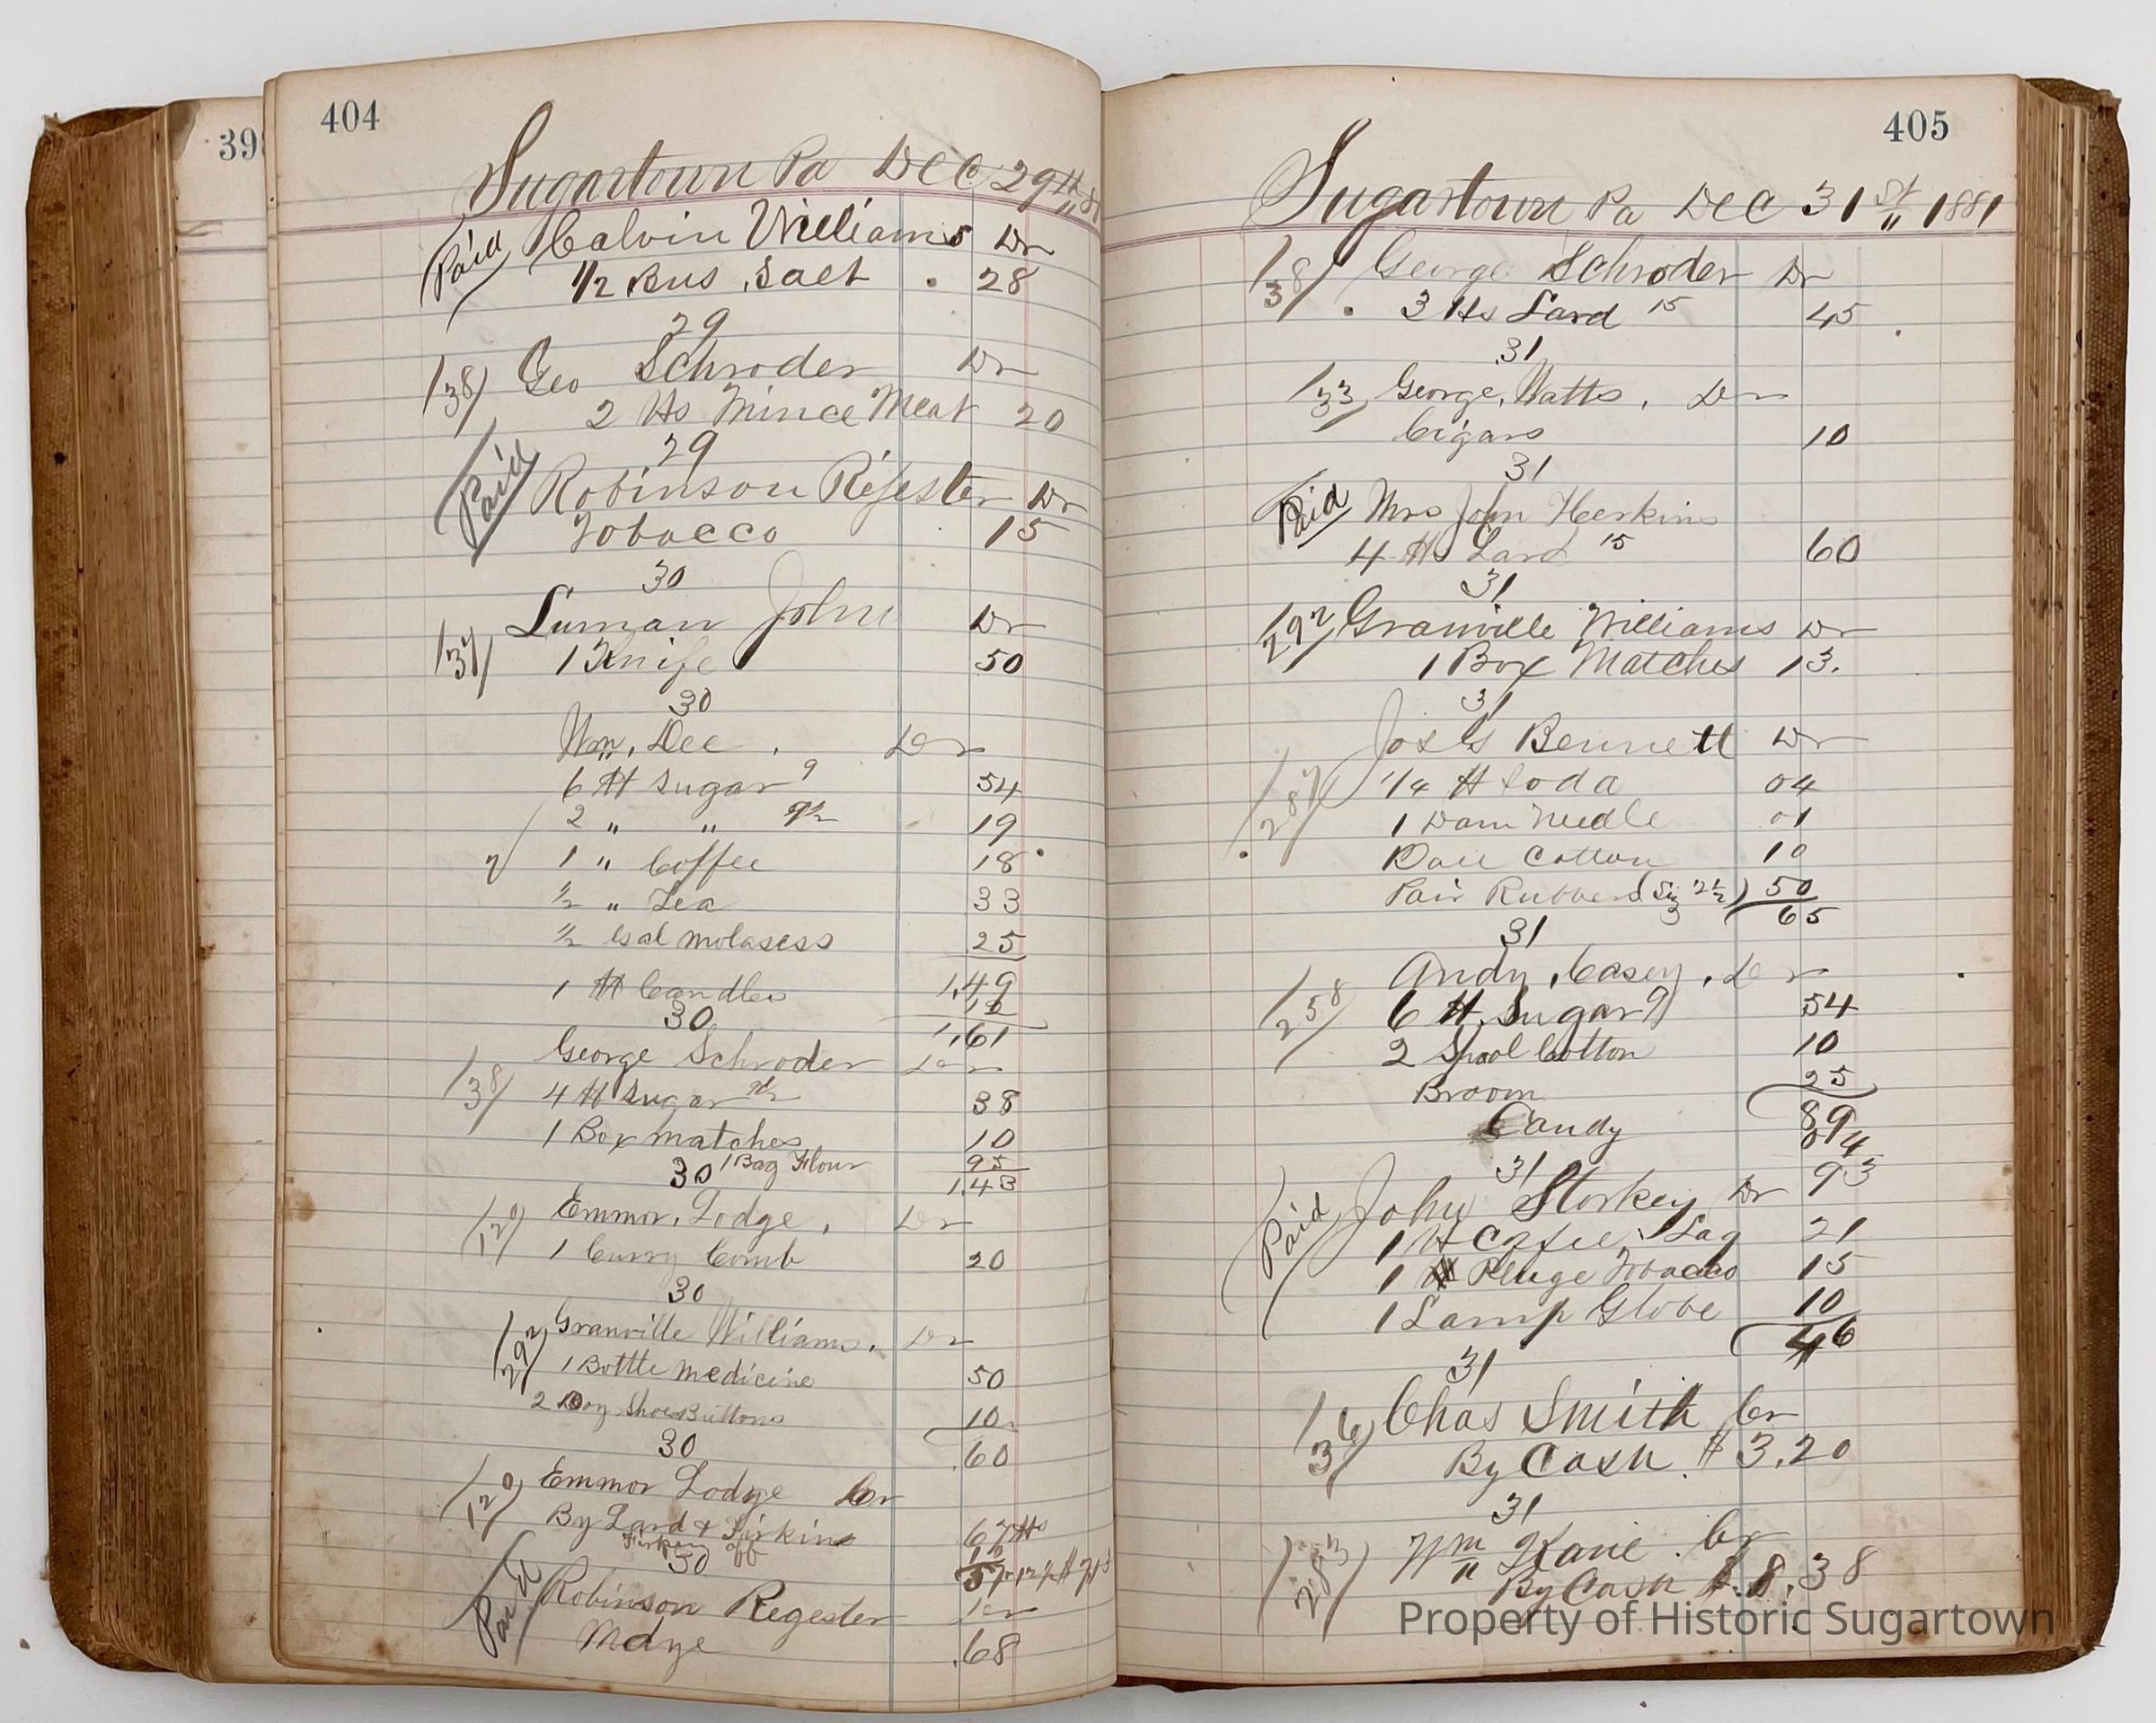 39
404
Sugartown Pa Dec 29th 81
Paid Calvin Williams Dr
1/2 Bus Salt . 28
29
138 Geo Schroder Dr
2 lbs Mince Meat 20
29
Paid Robinson Regester Dr
Tobacco 15
30
Luman John Dr
137 1 Knife 50
30
Wm. Dee . Dr
6 # Sugar 9 54
2 " " 9½ 19
1 " Coffee 18
½ " Tea 33
½ Gal molasess 25
1.49
1 # Candles 12
30 1,61
George Schroder Dr
138 4 # Sugar 9½ 38
1 Box matches 10
30 1 Bag Flour 95
1.43
Emmor. Lodge, Dr
129 1 Curry Comb 20
30
292 Granville Williams. Dr
1 Bottle medicine 50
2 Doz Shoe Buttons 10
30 .60
129 Emmor Lodge Cr
By Lard & Firkins 67 #s
Firkin off
30
Paid Robinson Regester Dr
Mdze .68
405
Sugartown Pa Dec 31st 1881
138 George Schroder Dr
3 lbs Lard 15 45
31
133 George Watts. Dr
Cigars 10
31
Paid Mrs John Herkins
4 lbs Lard 15 60
31
292 Granville Williams Dr
1 Box Matches 13.
31
Bennett Dr
287 1/4 # Soda 04
1 Darn Needle 01
Cotton 10
Pair Rubbers 2½ 50
3 65
31
Andy. Casey. Dr
258 6 # Sugar 9 54
2 Spool Cotton 10
Broom 25
89
Candy 04
31 93
Paid John Storkey Dr
1 # Cofee Lag 21
1 Pluge Tobacco 15
1 Lamp Globe 10
46
31
136 Chas Smith Cr
By Cash. $3.20
31
283 Wm Kane. Cr
By Cash $.8.38
Property of Historic Sugartown